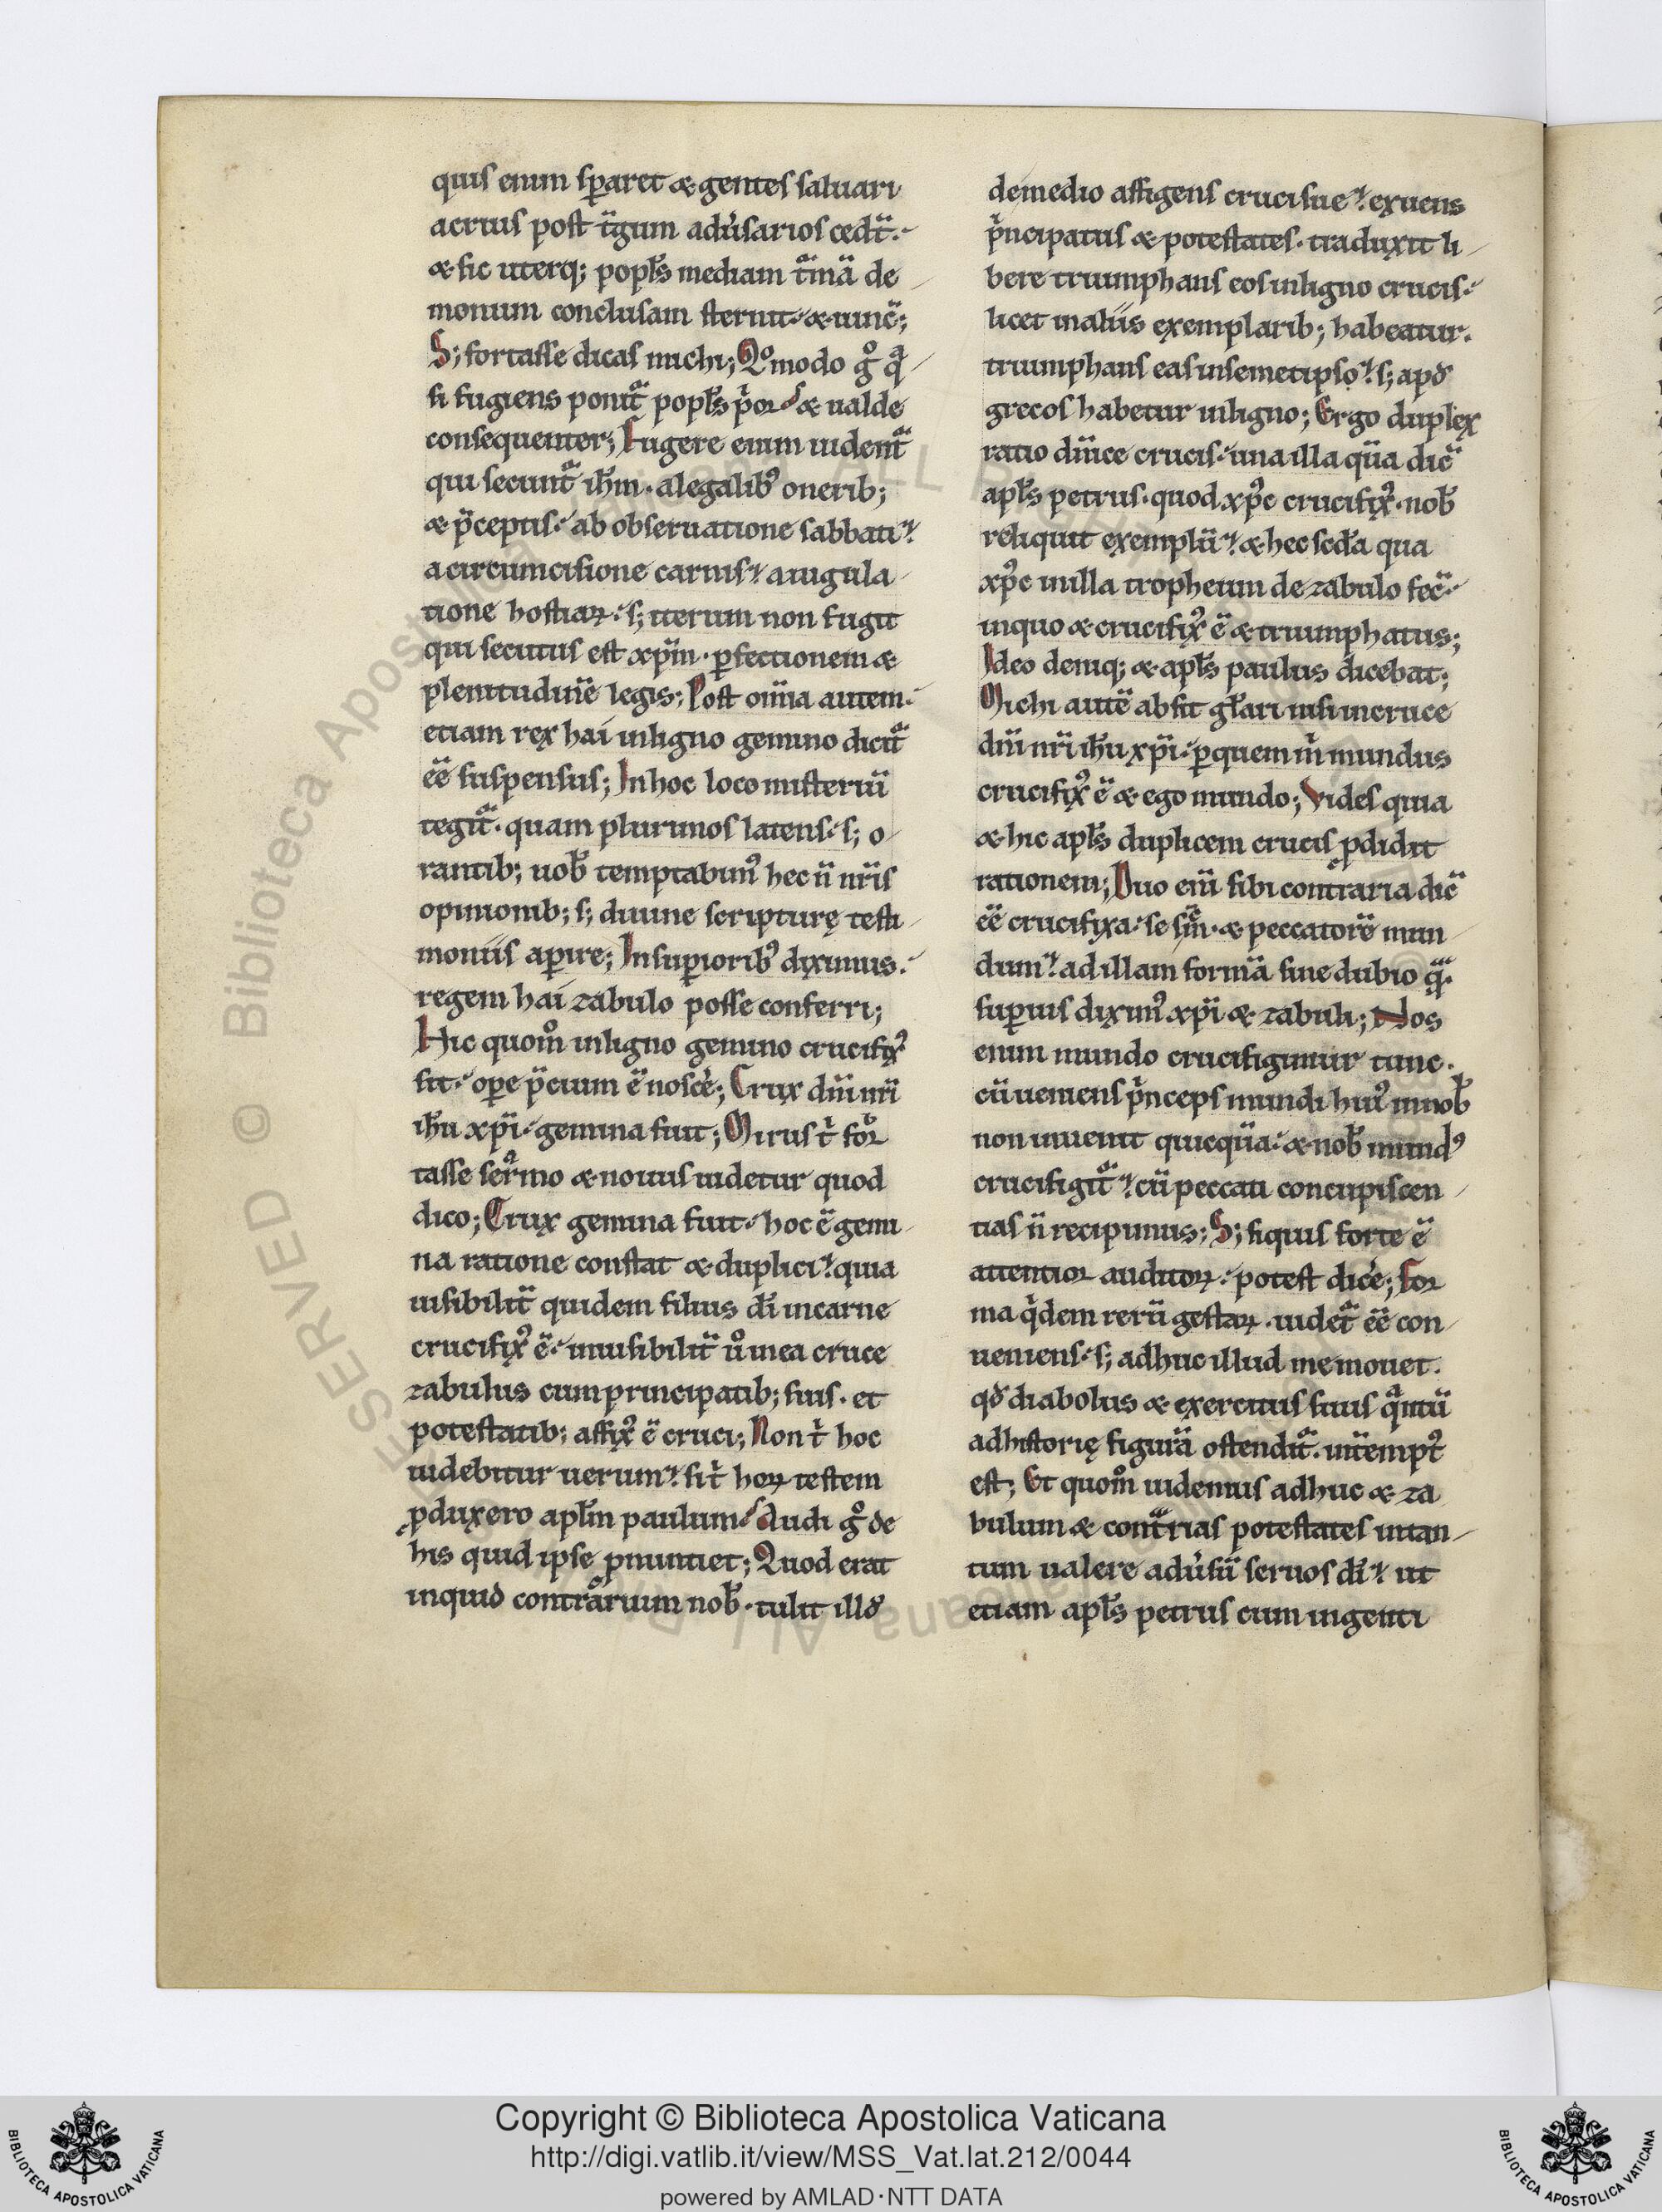 quis enim sp̱aret & gentes saluari
acrius post t̄gum adu̇sarios cedt̄.
& sic uterq; popl̄s mediam t̄minā de
monum conclusam sternit. & uinc̄;
S; fortasse dicas michi; Qͦmodo gͦ qͣ
si fugiens ponit᷑ popl̄s p̓or & ualde
consequenter; Fugere enim uident᷑
qui secunt᷑ ih̄m. alegalibꝰ onerib;
& p̄ceptis. ab obseruatione sabbati.
acircumcisione carnis. aiugula
tione hostiaꝝ. s; iterum non fugit
qui secutus est xp̄m. ꝑfectionem &
plenitudinē legis; Post om̄ia autem.
etiam rex hai inligno gemino dicit᷑
ēē suspensus; Inhoc loco misteriū
tegit᷑. quam plurimos latens. s; o
rantib; uob̄ temptabimꝰ hec n̄ nr̄is
opinionib; s; diuine scripturę testi
moniis aꝑire; Insuꝑioribꝰ diximus.
regem hai zabulo posse conferri;
Hic quom̊ inligno gemino crucifixꝰ
sit. oꝑe p̄cium ē nosce̓; Crux dn̄i nr̄i
ih̄u xp̄i. gemina fuit; Mirus t̓ for
tasse sermo & nouus uidetur quod
dico; Crux gemina fuit. hoc ē gemi
na ratione constat & duplici. quia
uisibilit̄ quidem filius dī incarne
crucifixꝰ ē. inuisibilit̄ uͦ inea cruce
zabulus cum principatib; suis. et
potestatib; affixꝰ ē cruci; Non t̓ hoc
uidebitur uerum. si t̓ hoꝝ testem
ꝓduxero apl̄m paulum. Audi gͦ de
his quid ipse ꝓnuntiet; Quod erat
inquid contrarium nob̄. tulit illđ
demedio affigens crucisue. exuens
p̓ncipatus & potestates. traduxit li
bere triumphans eos inligno crucis.
licet inaliis exemplarib; habeatur.
triumphans eas insemetipso. s; apđ
grecos habetur inligno; Ergo duplex
ratio dn̄ice crucis. una illa qūa dic̄
apl̄s petrus. quod xp̄c crucifixꝰ. nob̄
reliquit exemplū. & hec scđa qua
xp̄c inilla tropheum de zabulo fec̄.
inquo & crucifixꝰ ē & triumphatus;
Ideo deniq; & apl̄s paulus dicebat;
Michi autē absit gl̄ari nisi incruce
dn̄i nr̄i ih̄u xp̄i. ꝑquem m̓ mundus
crucifixꝰ ē & ego mundo; Vides quia
& hic apl̄s duplicem crucis ꝓdidit
rationem; Duo eni̅ sibi contraria dic̄
ēē crucifixa. se sm̄. & peccatorē mun
dum. ad illam formā sine dubio qͣ.
suꝑius diximꝰ xp̄i & zabuli; Nos
enim mundo crucifigimur tunc.
cū ueniens p̓nceps mundi huiꝰ innob̄
non inuenit quicqūa. & nob̄ mundꝰ
crucifigit᷑. cū peccati concupiscen
tias n̄ recipimus; S; siquis forte ē
attentior auditoꝝ. potest dice̓; For
ma q̓dem rerū gestaꝝ. uidet᷑ ēē con
ueniens. s; adhuc illud me mouet.
qđ diabolus & exercitus suus qͣntū
adhistorię figurā ostendit᷑. int̄emptꝰ
est; Et quom̊ uidemus adhuc & za
bulum & contrarias potestates intan
tum ualere adu̇sū seruos dī. ut
etiam apl̄s petrus cum ingenti
Copyright © Biblioteca Apostolica Vaticana
http://digi.vatlib.it/view/MSS_Vat.lat.212/0044
powered by AMLAD·NTT DATA
BIBLIOTECA APOSTOLICA VATICANA
BIBLIOTECA APOSTOLICA VATICANA